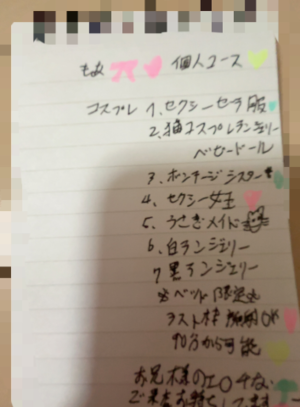 もな 個人コース
コスプレ 1、セクシーセーラー服
2、猫コスプレランジェリー
ベビードール
3、ボンテージシスター
4、セクシー女王
5、うさぎメイド
6、白ランジェリー
7、黒ランジェリー
ベット限定
ラスト枠 OK
90分から可能
お兄様のエロ
ご来店お待ちしてます